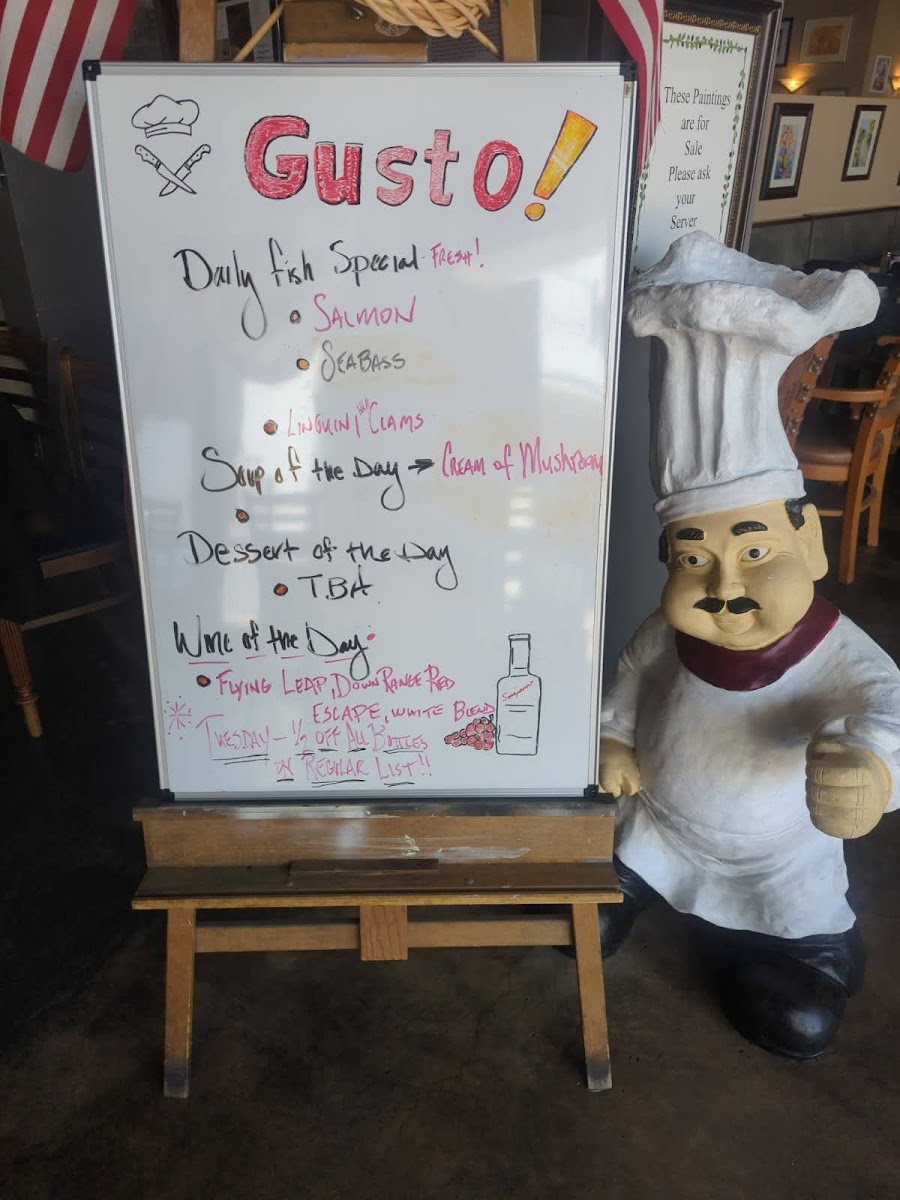 Gusto!
Daily fish Special - FRESH!
SALMON
SEABASS
LINGUINI w/ CLAMS
Soup of the Day → CREAM of MUSHROOM
Dessert of the Day
TBA
Wine of the Day:
FLYING LEAP, DOWN RANGE RED
ESCAPE, WHITE BLEND
TUESDAY - 1/2 OFF ALL BOTTLES
ON REGULAR LIST!!
These Paintings
are for
Sale
Please ask
your
Server